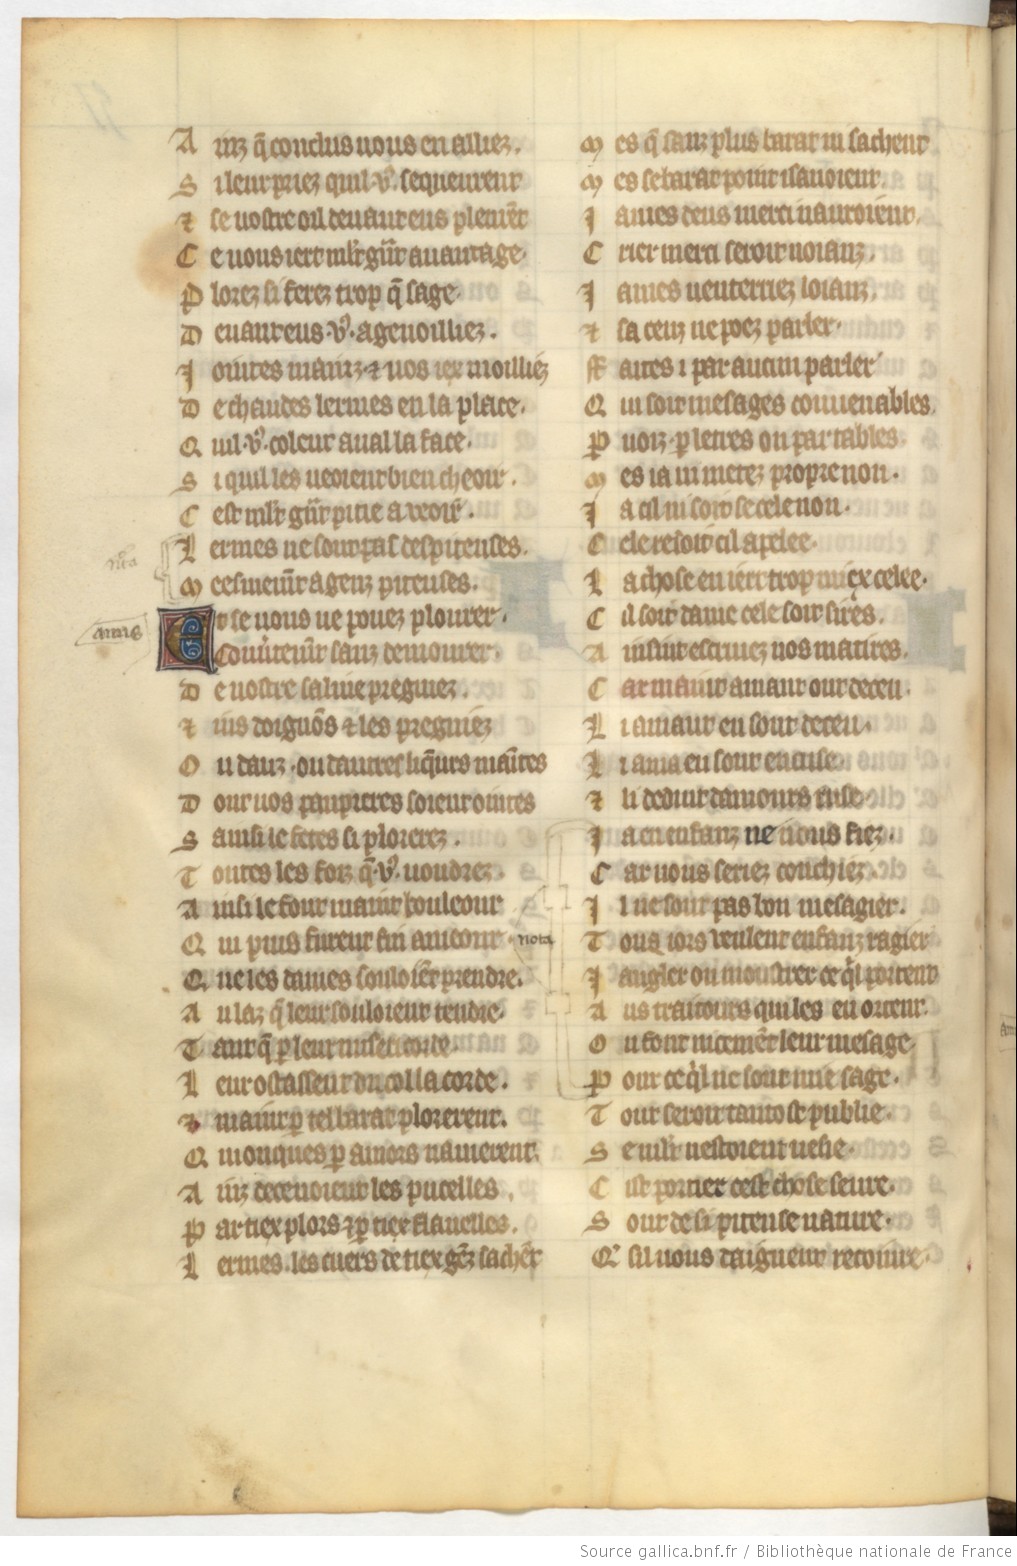 A inz q̃ conclus nous en ailliez.
S i leur priez quil .v9. sequeurent
⁊ se vostre oil devant eus pleurẽt
C e vous iert ml't gñt auantage.
P lorez si ferez trop q̃ sage.
D euant eus .v9. agenoilliez.
J ointes mainz ⁊ uos iex moilliez
D e chaudes lermes en la place.
Q uil .v9. coleut aual la face.
S i quil les ueoient bien cheoir.
C est ml't gñt pitie a veoir.
L ermes ne sont pas despiteuses.
M eesmem̃t a genz piteuses.
E t se uous ne pouez plourer.
Couũtem̃t sanz demourer.
D e uostre saliue pregniez.
⁊ uis doignõs ⁊ les pregniez
O u dauz . ou dautres liq̃urs maĩtes
D ont uos paupieres soient ointes
S ainsi le fetes si plorerez.
T outes les foiz q̃ .v9. uoudrez.
A insi le font maint bouleour
Q ui puis furent fin ameour.
Q ue les dames souloiẽt prendre.
A u laz q̃ leur souloient tendre.
T ant q̃ p leur misericorde.
L eur ostassent du col la corde.
⁊ maint p tel barat plorerent.
Q ui onques p amors namerent.
A inz deceuoient les pucelles.
P ar tiex plors ⁊ p tiex flauelles.
L ermes . les cuers de tiex gẽz sachẽt
nota
amis
M es q̃ sanz plus barat ni sachent
M es se barat point i sauoient.
J ames deus merci nauroient.
C rier merci seroit noianz.
J ames nenterriez loianz.
⁊ sa ceuz ne poez parler.
FF aites i par aucun parler
Q ui soit mesages conuenables.
P uoiz . p letres ou par tables.
M es ia ni metez propre non.
J a cil ni soit se cele non.
C ele resoit cil apelee.
L a chose en iert trop miex celee.
C il soit dame cele soit sires.
A insint escriuez uos matires.
C ar maint amant ont deceu.
L i amant en sont deceu.
L i ama en sont encuse.
⁊ li deduit damours ruse
J a en enfanz ne uous fiez.
C ar uous seriez conchiez.
J l ne sont pas bon mesagier.
T ouz iors veulent enfanz ragier
J angler ou moustrer ce q̃l portent
A us traitours qui les en ortent.
O u font nicemẽt leur mesage.
P our ce q̃l ne sont mie sage.
T out seroit tantost publie.
S e ml't nestoient uesie.
C ist portier cest chose seure.
S ont de si piteuse nature.
Q sil uous daignent receuure.
nota